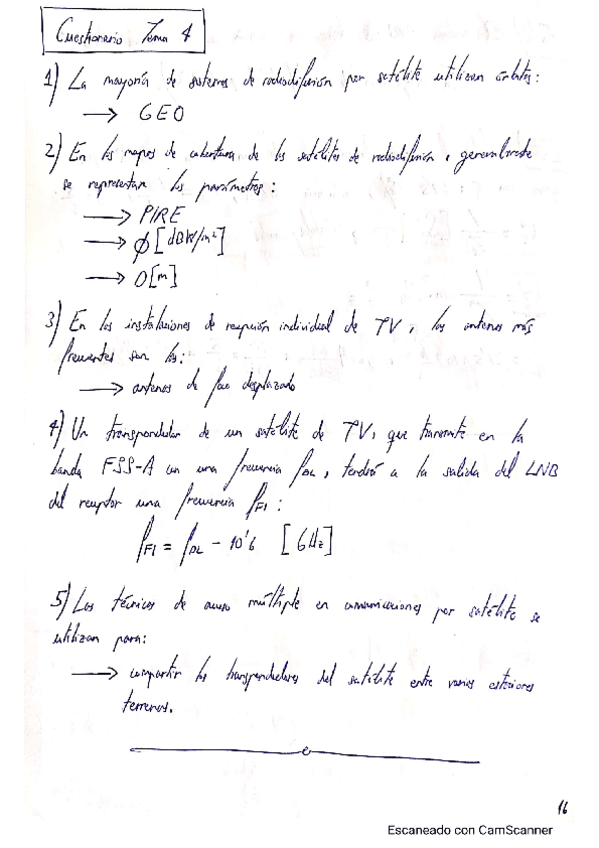 Cuestionario Tema 4
1) La mayoría de sistemas de radiodifusión por satélite utilizan órbitas:
→ GEO
2) En los mapas de cobertura de los satélites de radiodifusión, generalmente
se representan los parámetros:
→ PIRE
→ ϕ [dBW/m²]
→ D[m]
3) En las instalaciones de recepción individual de TV, las antenas más
frecuentes son las:
→ antenas de foco desplazado
4) Un transpondedor de un satélite de TV, que transmite en la
banda FSS-A con una frecuencia f_DL, tendrá a la salida del LNB
del receptor una frecuencia f_FI:
f_FI = f_DL - 10'6 [GHz]
5) Las técnicas de acceso múltiple en comunicaciones por satélite se
utilizan para:
→ compartir los transpondedores del satélite entre varias estaciones
terrenas.
16
Escaneado con CamScanner